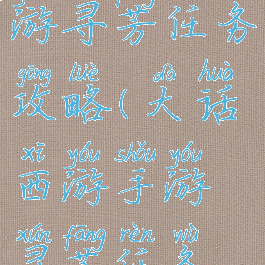 游寻芳任务
gōng lüè dà huà
攻略(大话
xī yóu shǒu yóu
西游手游
xún fāng rèn wù
寻芳任务